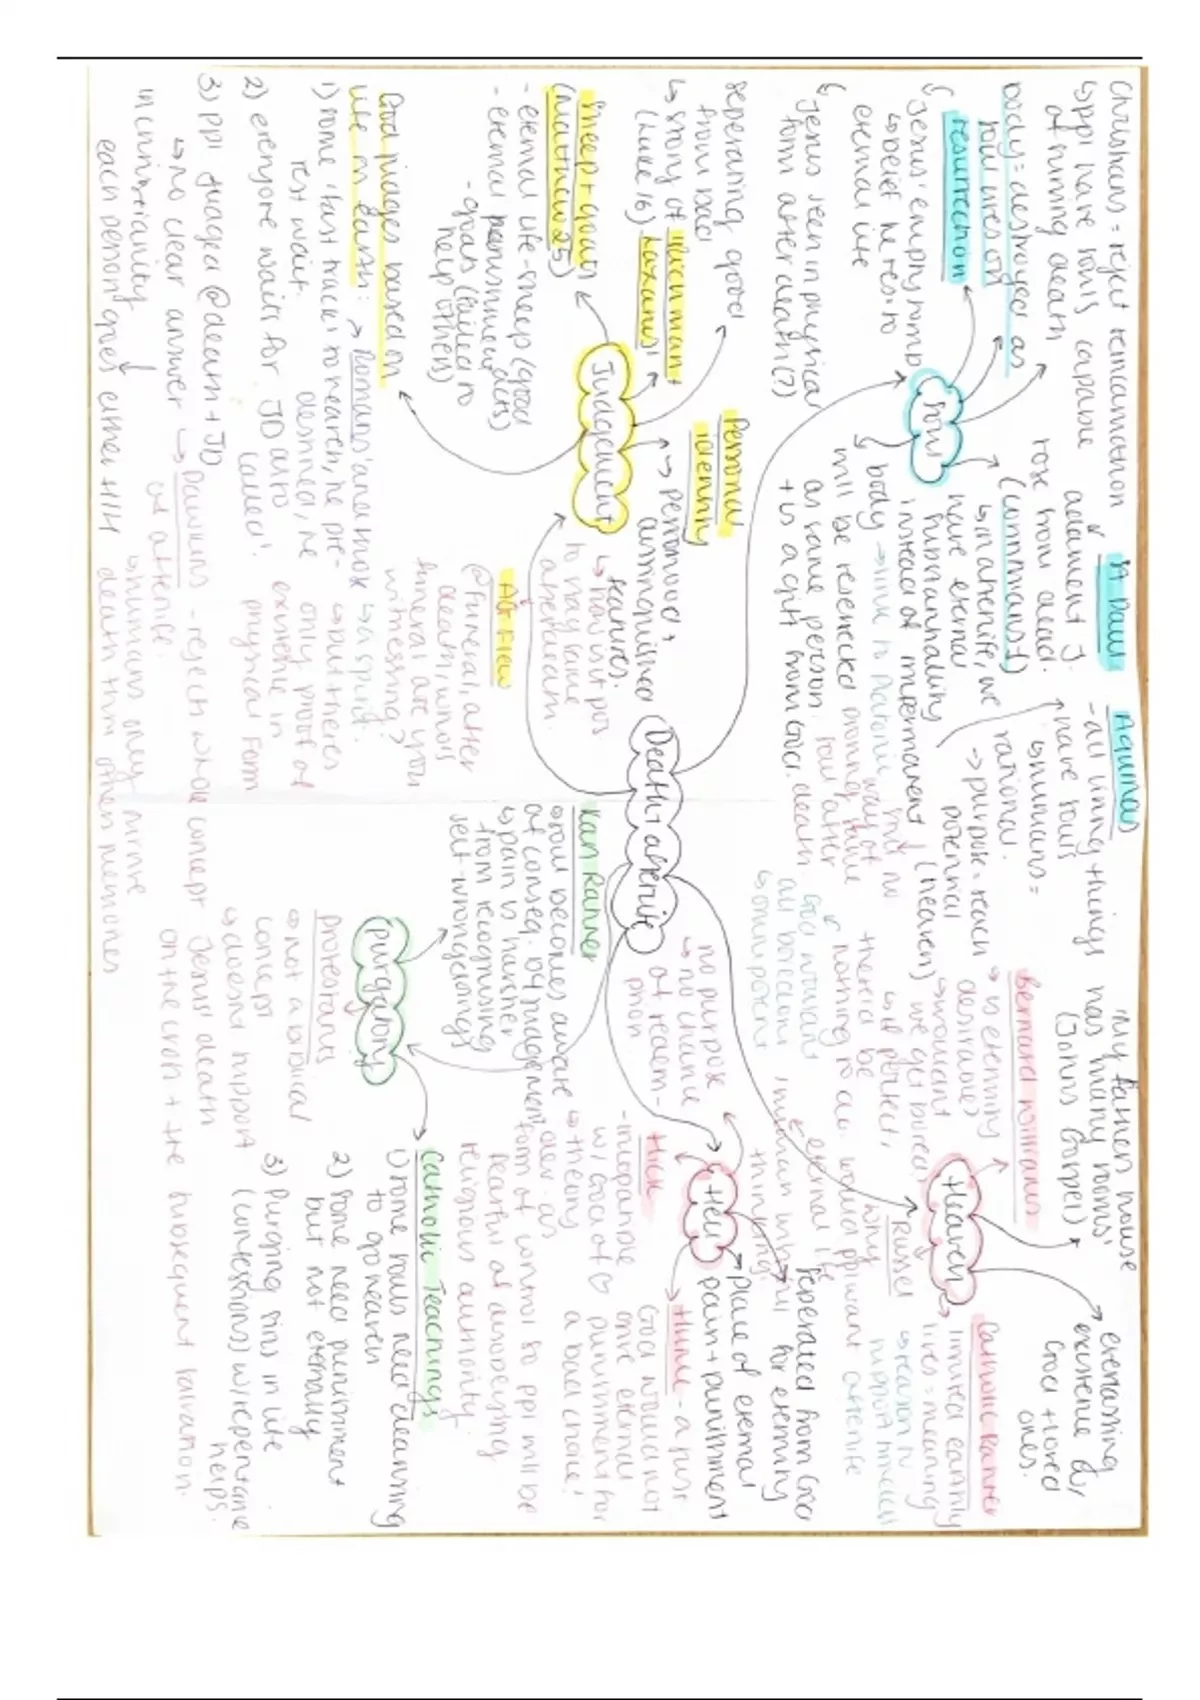 Death + afterlife
Souls
Christians = reject reincarnation
↳ ppl have souls capable
of surviving death
body = destroyed as
soul lives on
resurrection
↳ Jesus' empty tomb
↳ belief he res. to
eternal life
↳ Jesus seen in physical
form after death (?)
St Paul
adament J.
rose from dead.
(Corinthians 1)
↳ in afterlife, we
have eternal
instead of impermanent
body → link to Platonic
will be reserected
as same person
+ is a gift from God.
Aquinas
- all living things
have souls
↳ humans =
rational
→ purpose = reach
potential
(heaven)
soul after
death
Judgement
seperating good
from bad
↳ story of 'Rich man +
(Luke 16) Lazarus'
Sheep + goats
(Matthew 25)
- eternal life - sheep (good
deeds)
- eternal punishment
- goats (failed to
help others)
God judges based on
life on earth:
1) some 'fast track' to heaven, the
rest wait.
2) everyone waits for JD
3) ppl judged @ death + JD
↳ no clear answer
in christianity
each person goes either H/H
Personal
identity
→ personod,
distinguished
features.
↳ how is it pos
to may same
afterdeath
ALF Flew
@ funeral, after
death, who's
funeral are you
witnessing?
→ a spirit.
→ but theres
only proof of
existence in
physical form
→ Dawkins - rejects whole concept
of afterlife.
↳ humans only survive
death thru others memories
Heaven
'my father house
has many rooms'
(John's Gospel)
everlasting
existence w/
God + loved
ones.
Bernard Williams
↳ is eternity
desirable?
↳ wouldnt
we get bored,
if perfect,
there'd be
nothing to do.
Russel
why
would ppl want
eternal life
Catholic Rahner
limited earthly
lives = meaning
Hell
seperated from God
for eternity
place of eternal
pain + punishment
no purpose
→ no chance
of redem-
ption
God would
all become
↳ omnipotent
Hick
- incompatible
w/ God of ♡
→ theory dev. as
form of control so ppl will be
fearful of disobeying
religious authority
Hume - a just
God would not
give eternal
punishment for
a bad choice!
Purgatory
Karl Rahner
↳ soul becomes aware
of conseq. of judgement
↳ pain is harsher
from recognising
self-wrongdoings
Protestants
↳ not a biblical
concept
↳ doesnt support
Jesus' death
on the cross + the subsequent salvation.
Catholic Teachings
1) some souls need cleaning
to go heaven
2) some need punishment
but not eternally
3) Purging sins in life
(confessions) w/ repentance
helps.